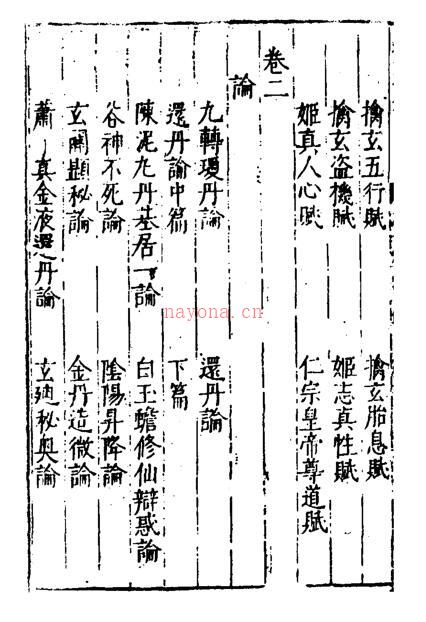 擒玄五行賦　擒玄胎息賦
擒玄盗機賦　姬志真性賦
姬真人心賦　仁宗皇帝尊道賦
卷二
論
九轉瓊丹論　還丹論
還丹論中篇　下篇
陳泥丸丹基居一論　白玉蟾修仙辯惑論
谷神不死論　陰陽昇降論
玄關顯秘論　金丹造微論
蕭真金液還丹論　玄廸秘奥論
nayona.cn